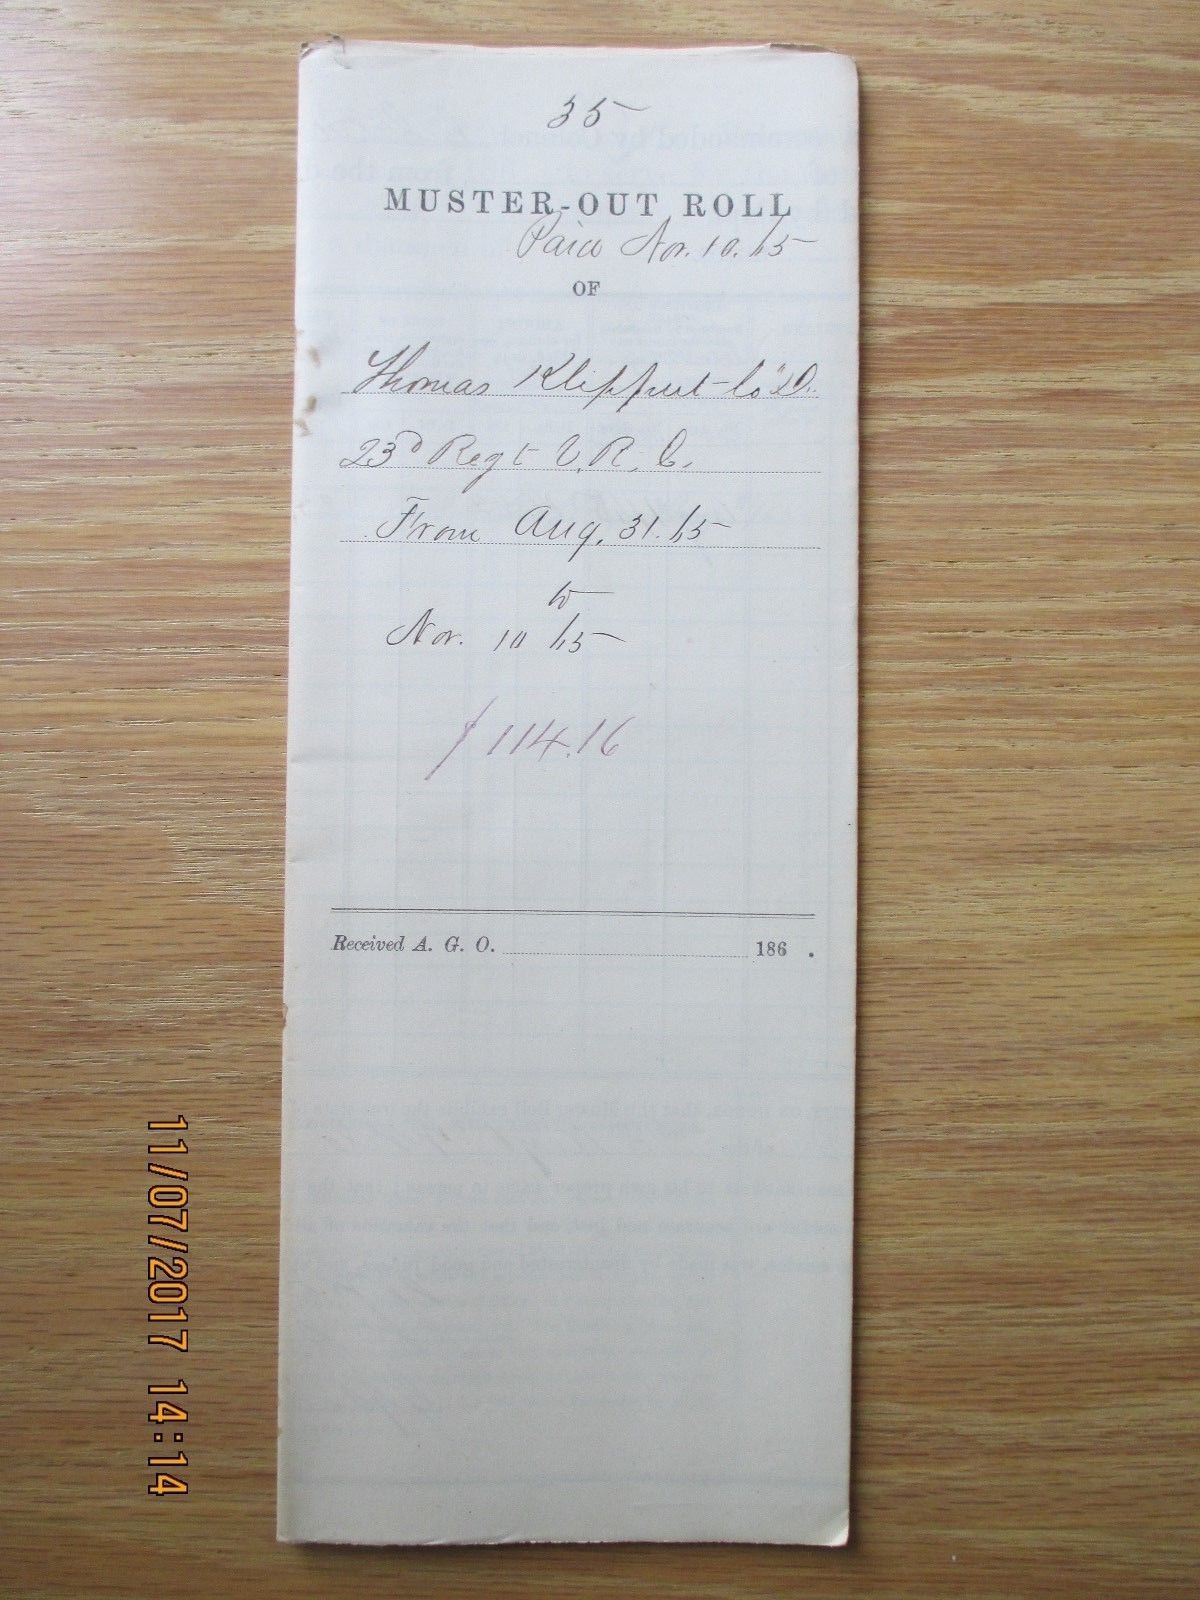 35
MUSTER-OUT ROLL
Paid Nov. 10. 65
OF
Thomas Klippert Co "D."
23d Regt V. R. C.
From Aug. 31. 65
to
Nov. 10 65
$114.16
Received A. G. O. 186 .
11/07/2017 14:14